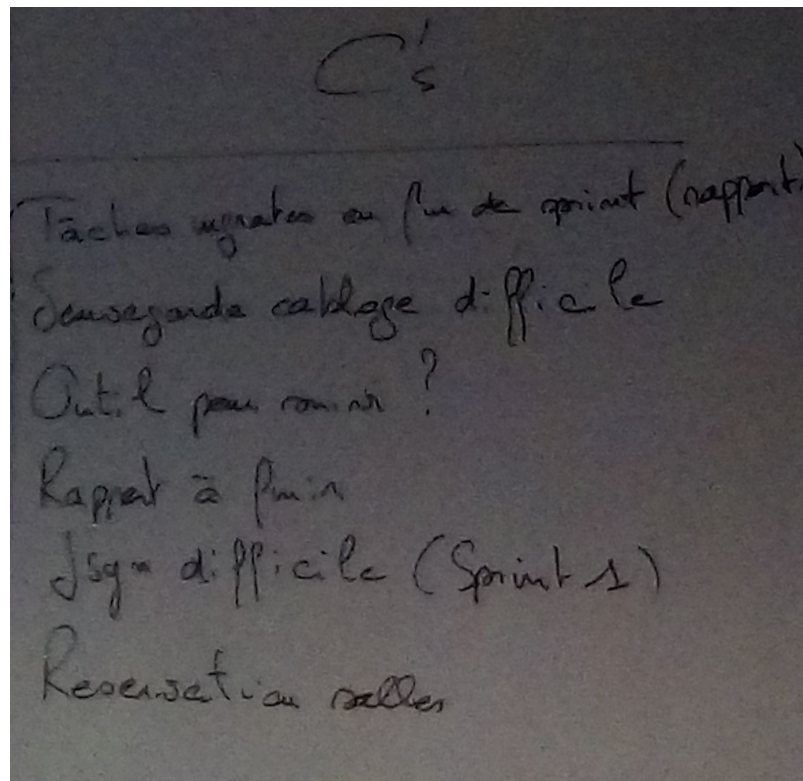 C's
Tâches en fin de sprint (rapport)
Sauvegarde cablage difficile
Outil pour ?
Rapport à finir
difficile (Sprint 1)
Reservation salles